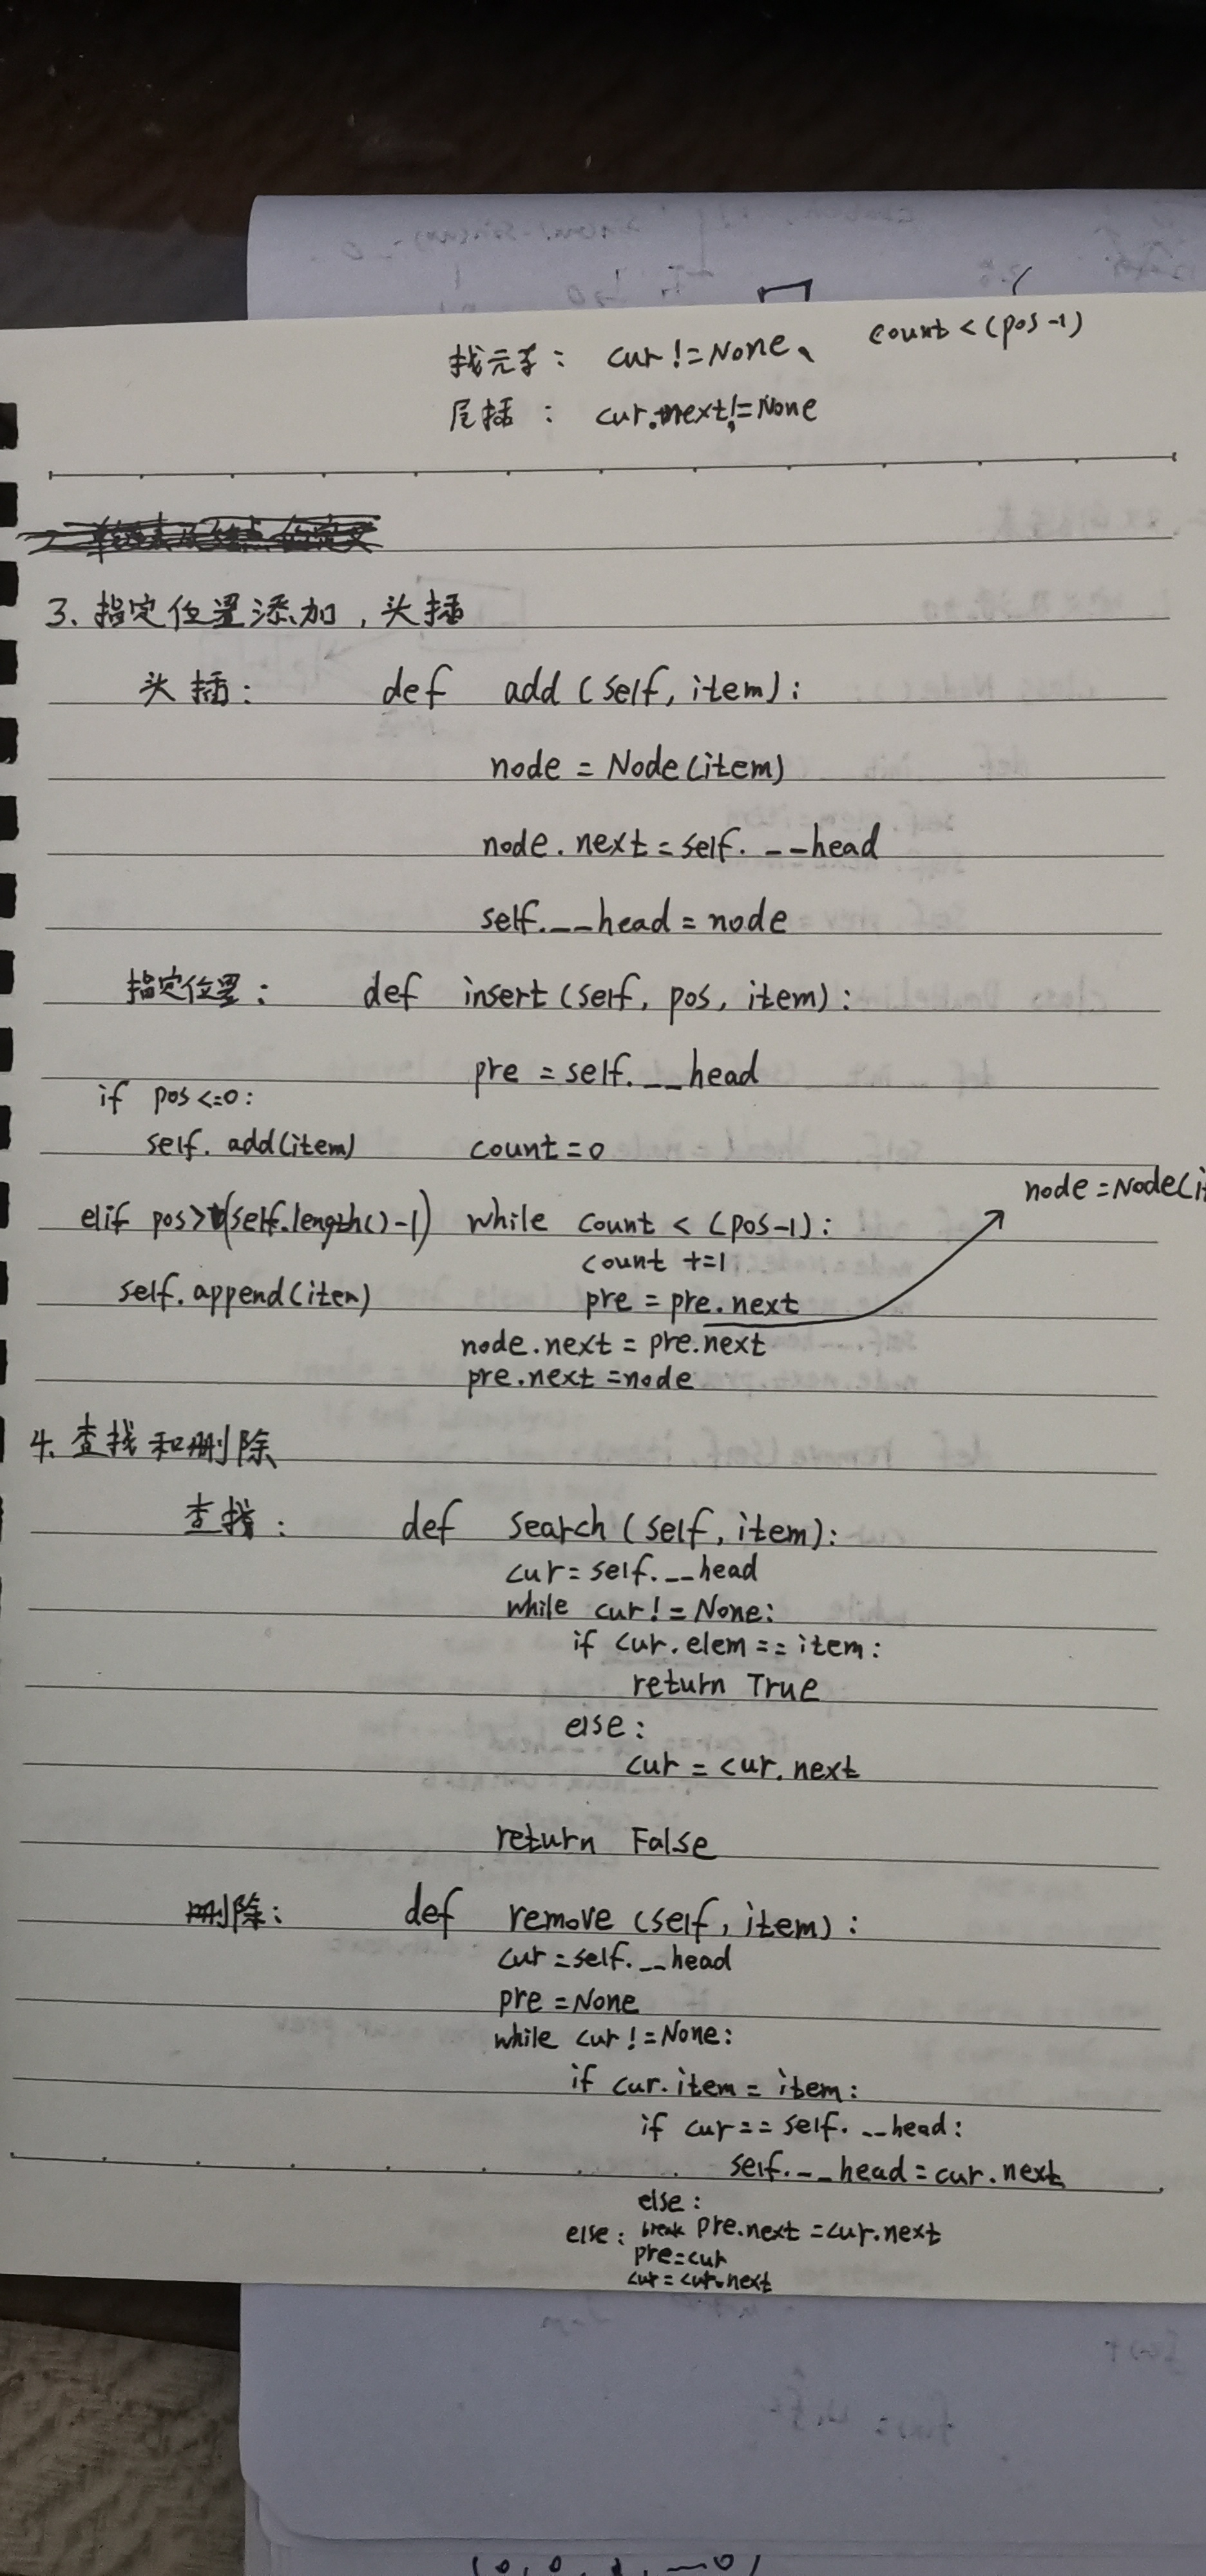 找元素： cur != None、 count < (pos -1)
尾插： cur.next != None
3. 指定位置添加，头插
头插： def add (self, item):
node = Node(item)
node.next = self.__head
self.__head = node
指定位置： def insert (self, pos, item):
pre = self.__head
if pos <= 0:
self.add(item) count = 0
node = Node(i
elif pos > (self.length()-1) while count < (pos-1):
count += 1
self.append(item) pre = pre.next
node.next = pre.next
pre.next = node
4. 查找和删除
查找： def search (self, item):
cur = self.__head
while cur != None:
if cur.elem == item:
return True
else:
cur = cur.next
return False
删除： def remove (self, item):
cur = self.__head
pre = None
while cur != None:
if cur.item = item:
if cur == self.__head:
self.__head = cur.next
else:
else: break pre.next = cur.next
pre = cur
cur = cur.next